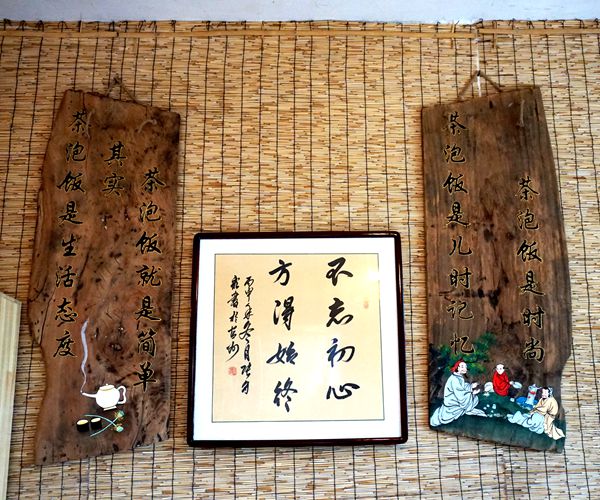 茶泡饭是生活态度
其实
茶泡饭就是简单
不忘初心
方得始终
丙申年冬月
茶泡饭是儿时记忆
茶泡饭是时尚